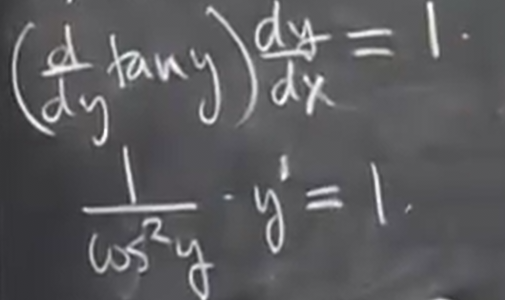 (d/dy tan y) dy/dx = 1.
1/cos²y · y' = 1.